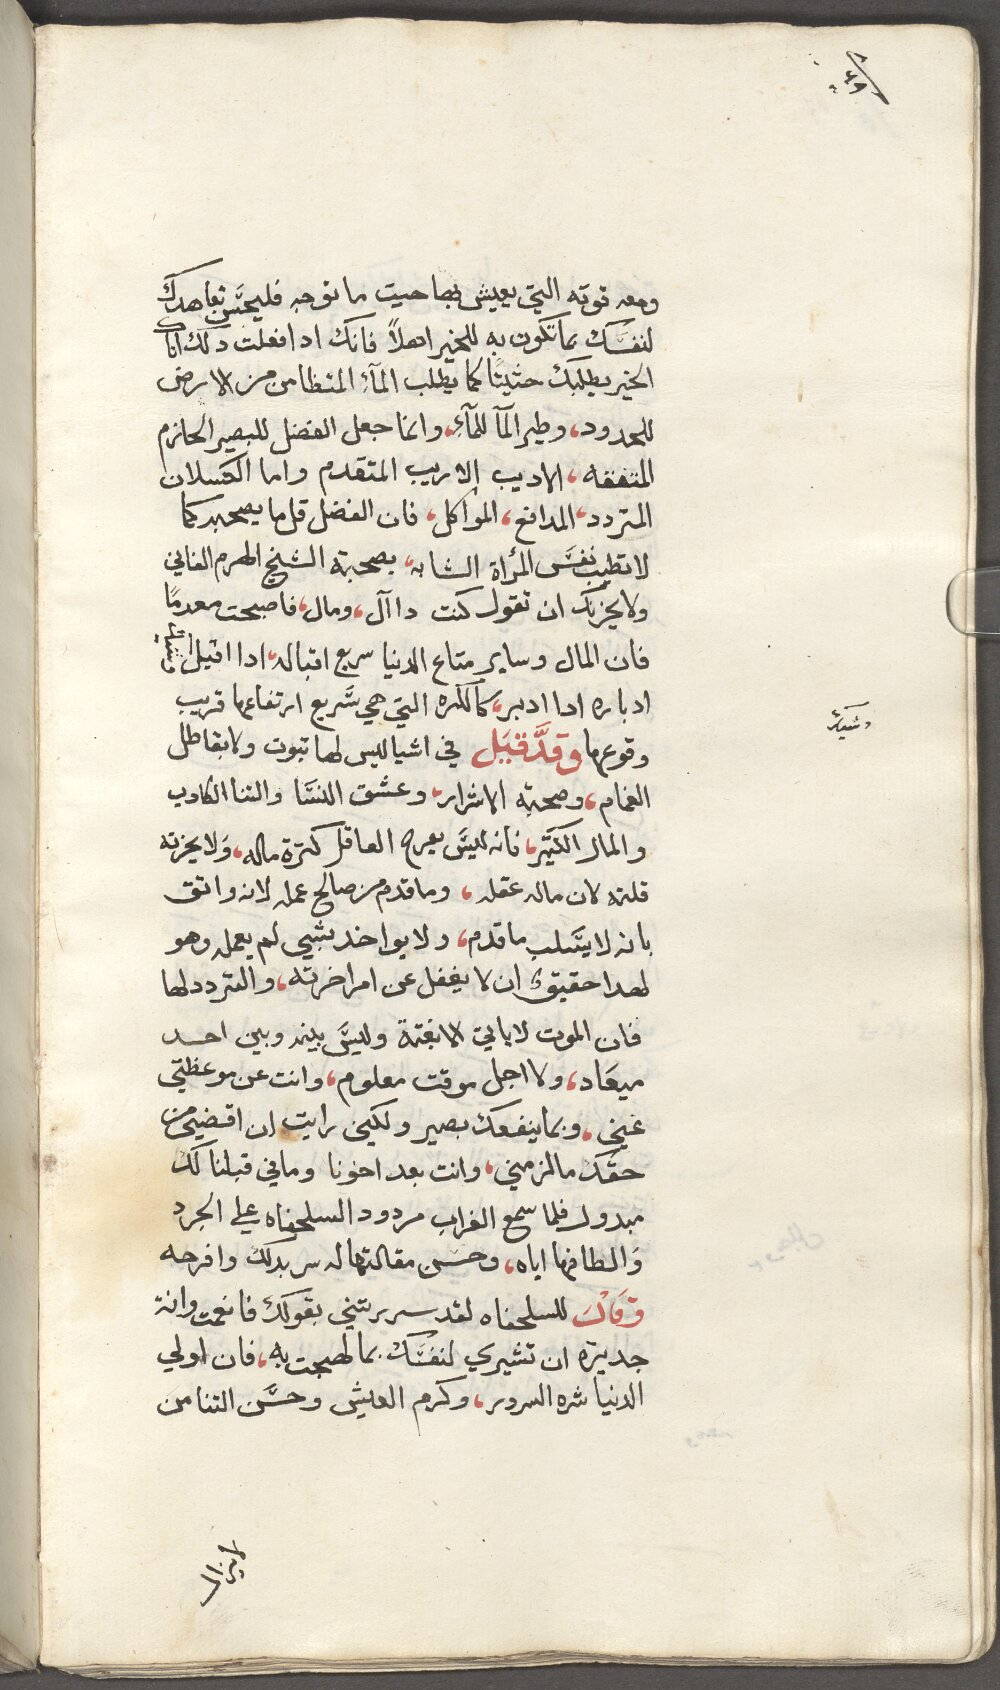 ومعه قوته التي يعيش بها حيث ما توجه فليحسن تعاهدك
لنفسك بما تكون به للخير اهلاً فانك ادا فعلت دلك اتاك
الخير يطلبك حثيثًا كما يطلب المآء المتطامن من الارض
للحدود، وطير المآ للمآءِ، وانما جعل الفضل للبصير الحازم
المتفقه، الاديب الاريب المتقدم واما الكسلان
المتردد، المدافع، المواكل، فان الفضل قل ما يصحبه كما
لا تطيب نفس المرأة الشابه، بصحبة الشيخ الهرم الفاني
ولا يحزنك ان تقول كنت دا آل، ومال، فاصبحت معدمًا
فان المال وساير متاع الدنيا سريع اقباله، ادا اقبل
ادباره ادا ادبر، كالكره التي هي سريع ارتفاعها قريب
وقوعها وقد قيل في اشيا ليس لها تبوت ولا بقا ظل
الغمام، وصحبة الاشرار، وعشق النسا والتنا الكادب
والمال الكتير، فانه ليس يفرح العاقل كترة ماله، ولا يحزنه
قلته لان ماله عقله، وما قدم من صالح عمله لانه واتق
بانه لا يسلب ما قدم، ولا يواخد بشيي لم يعمله وهو
لهدا حقيق ان لا يغفل عن امر اخرته، والتردد لها
فان الموت لا ياتي الا بغتة وليس بينه وبين احد
ميعاد، ولا اجل موقت معلوم، وانت عن موعظتي
غني، وبما ينفعك بصير ولكني رايت ان اقضي من
حقك ما لزمني، وانت بعد اخونا وما في قبلنا لك
مبدول فلما سمع الغراب مردود السلحفاه علي الجرد
والطافها اياه، وحسن مقالتها له سر بدلك وافرحه
وقال للسلحفاه لقد سررتني بقولك فانعمت وانة
جديرة ان تشيري لنفسك بما لصحت به، فان اولي
الدنيا شره السرور، وكرم العيش وحسن التنا من